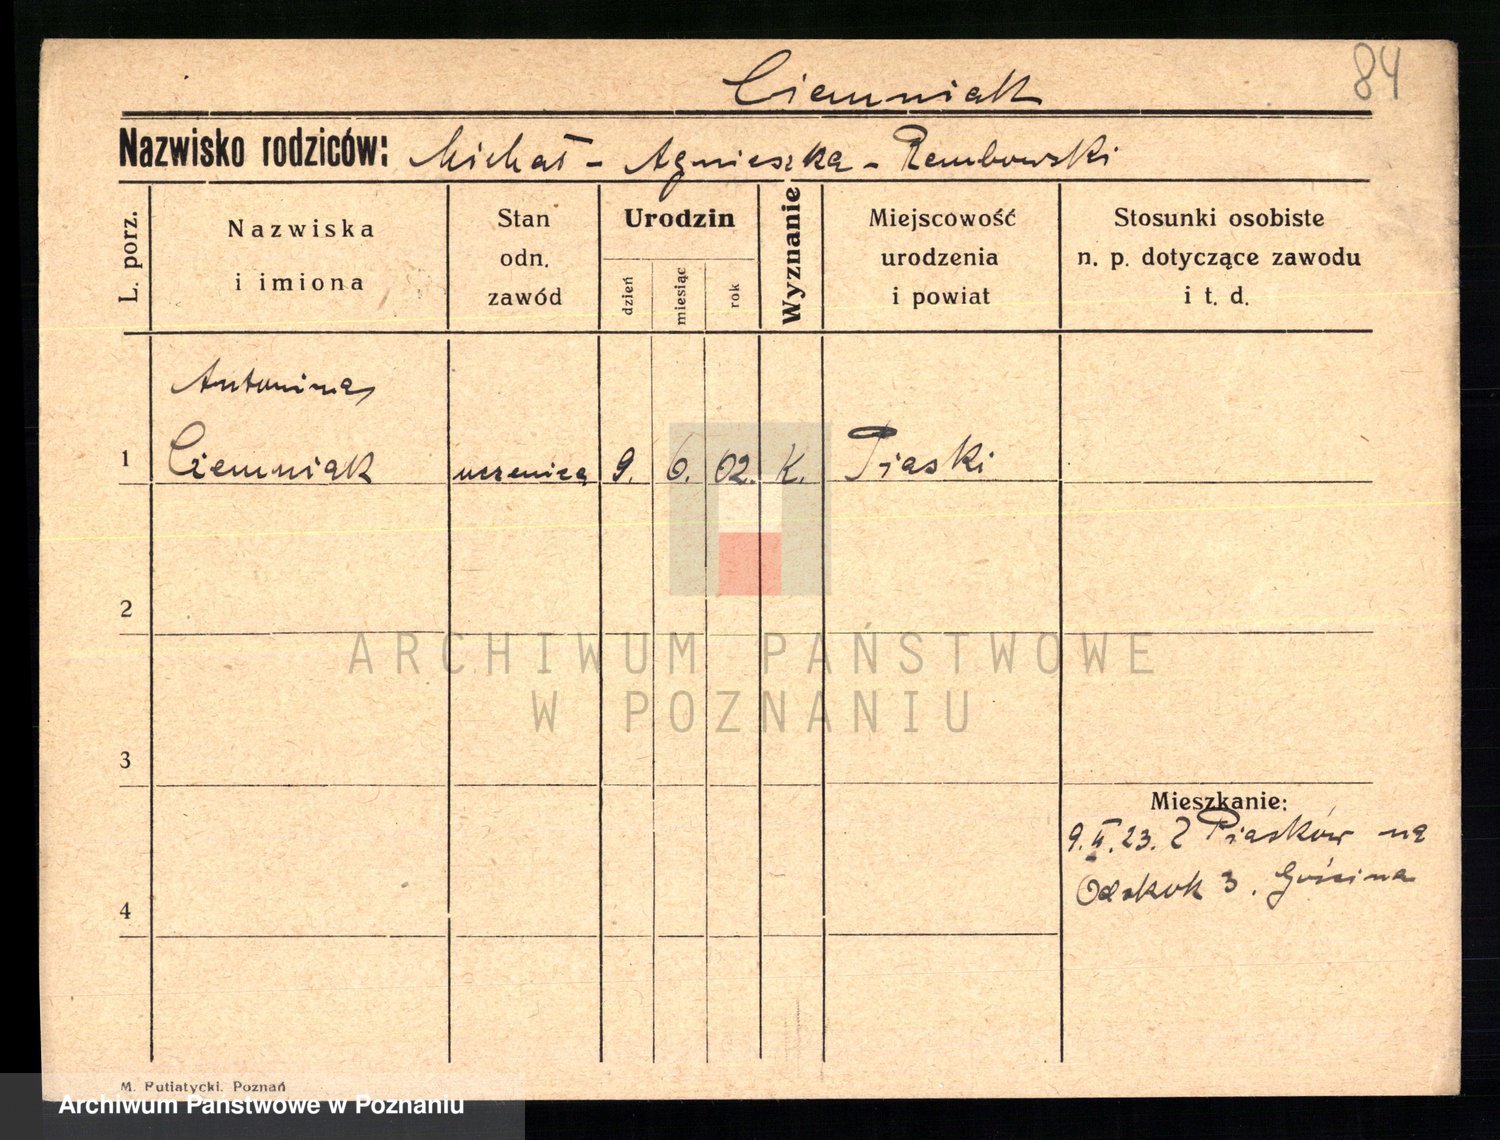 Ciemniak
84
Nazwisko rodziców: Michał - Agnieszka - Rembowski
L. porz.
Nazwiska
i imiona
Stan
odn.
zawód
Urodzin
dzień
miesiąc
rok
Wyznanie
Miejscowość
urodzenia
i powiat
Stosunki osobiste
n. p. dotyczące zawodu
i t. d.
Antonina
1 Ciemniak uczenica 9. 6. 02. K. Piaski
2
ARCHIWUM PAŃSTWOWE
W POZNANIU
3
Mieszkanie:
9. II. 23. Z Piasków na
3.
4
M. Putiatycki, Poznań
Archiwum Państwowe w Poznaniu